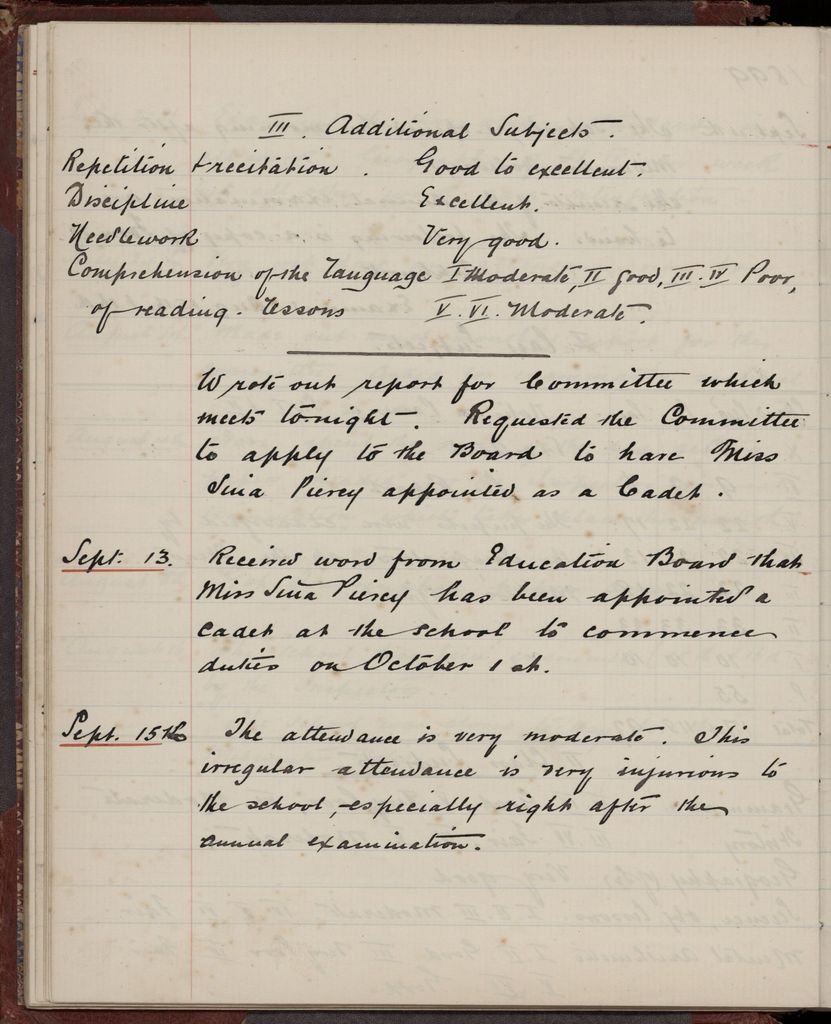 III. Additional Subjects.
Repetition & recitation. Good to excellent.
Discipline Excellent.
Needlework Very good.
Comprehension of the Language I Moderate, II good, III. IV Poor,
of reading. Lessons V. VI. Moderate.
Wrote out report for Committee which
meets to-night. Requested the Committee
to apply to the Board to have Miss
Sina Piercy appointed as a Cadet.
Sept. 13. Received word from Education Board that
Miss Sina Piercy has been appointed a
cadet at the school to commence
duties on October 1st.
Sept. 15th The attendance is very moderate. This
irregular attendance is very injurious to
the school, especially right after the
annual examination.